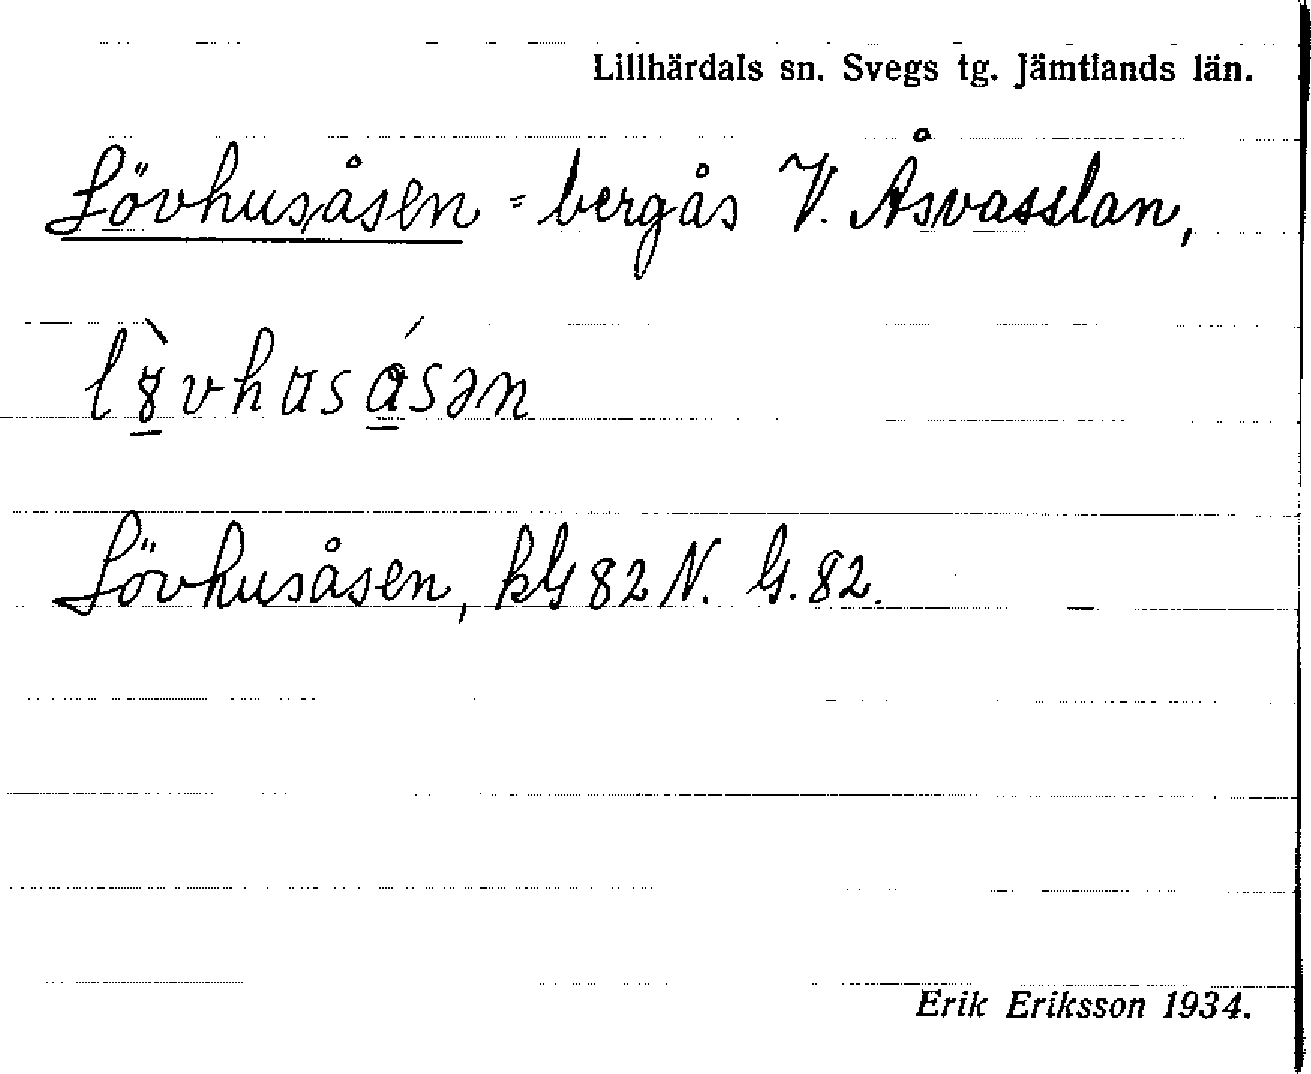 Lillhärdals sn. Svegs tg. Jämtlands län.
Lövhusåsen = bergås V. Åsvasslan,
Lövhusåsen, kG 82 N. G. 82.
Erik Eriksson 1934.